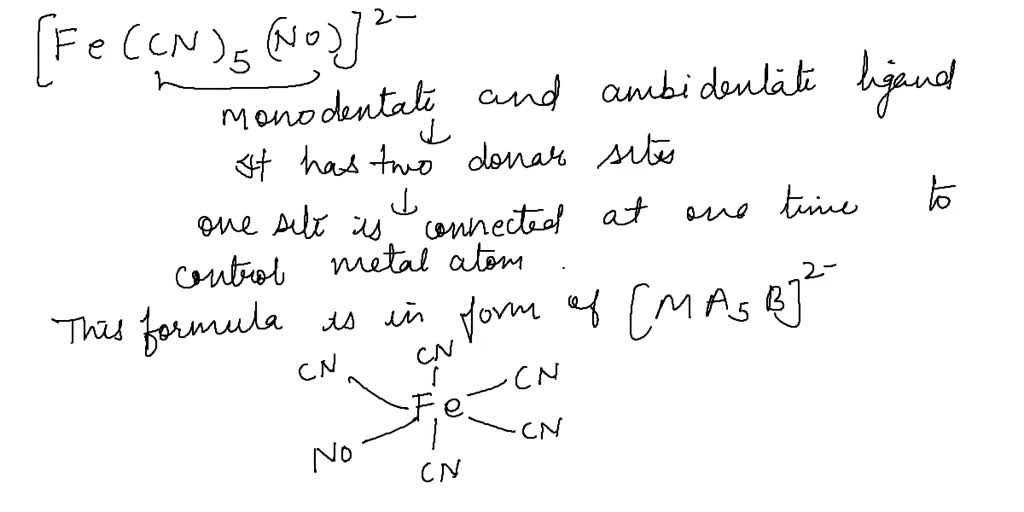 [Fe(CN)5(NO)]2-
Monodentate and ambidentate ligand
↓
It has two donar sites
↓
one site is connected at one time to
control metal atom.
This formula is in form of [MA5B]2-
CN
CN
CN
Fe
CN
NO
CN